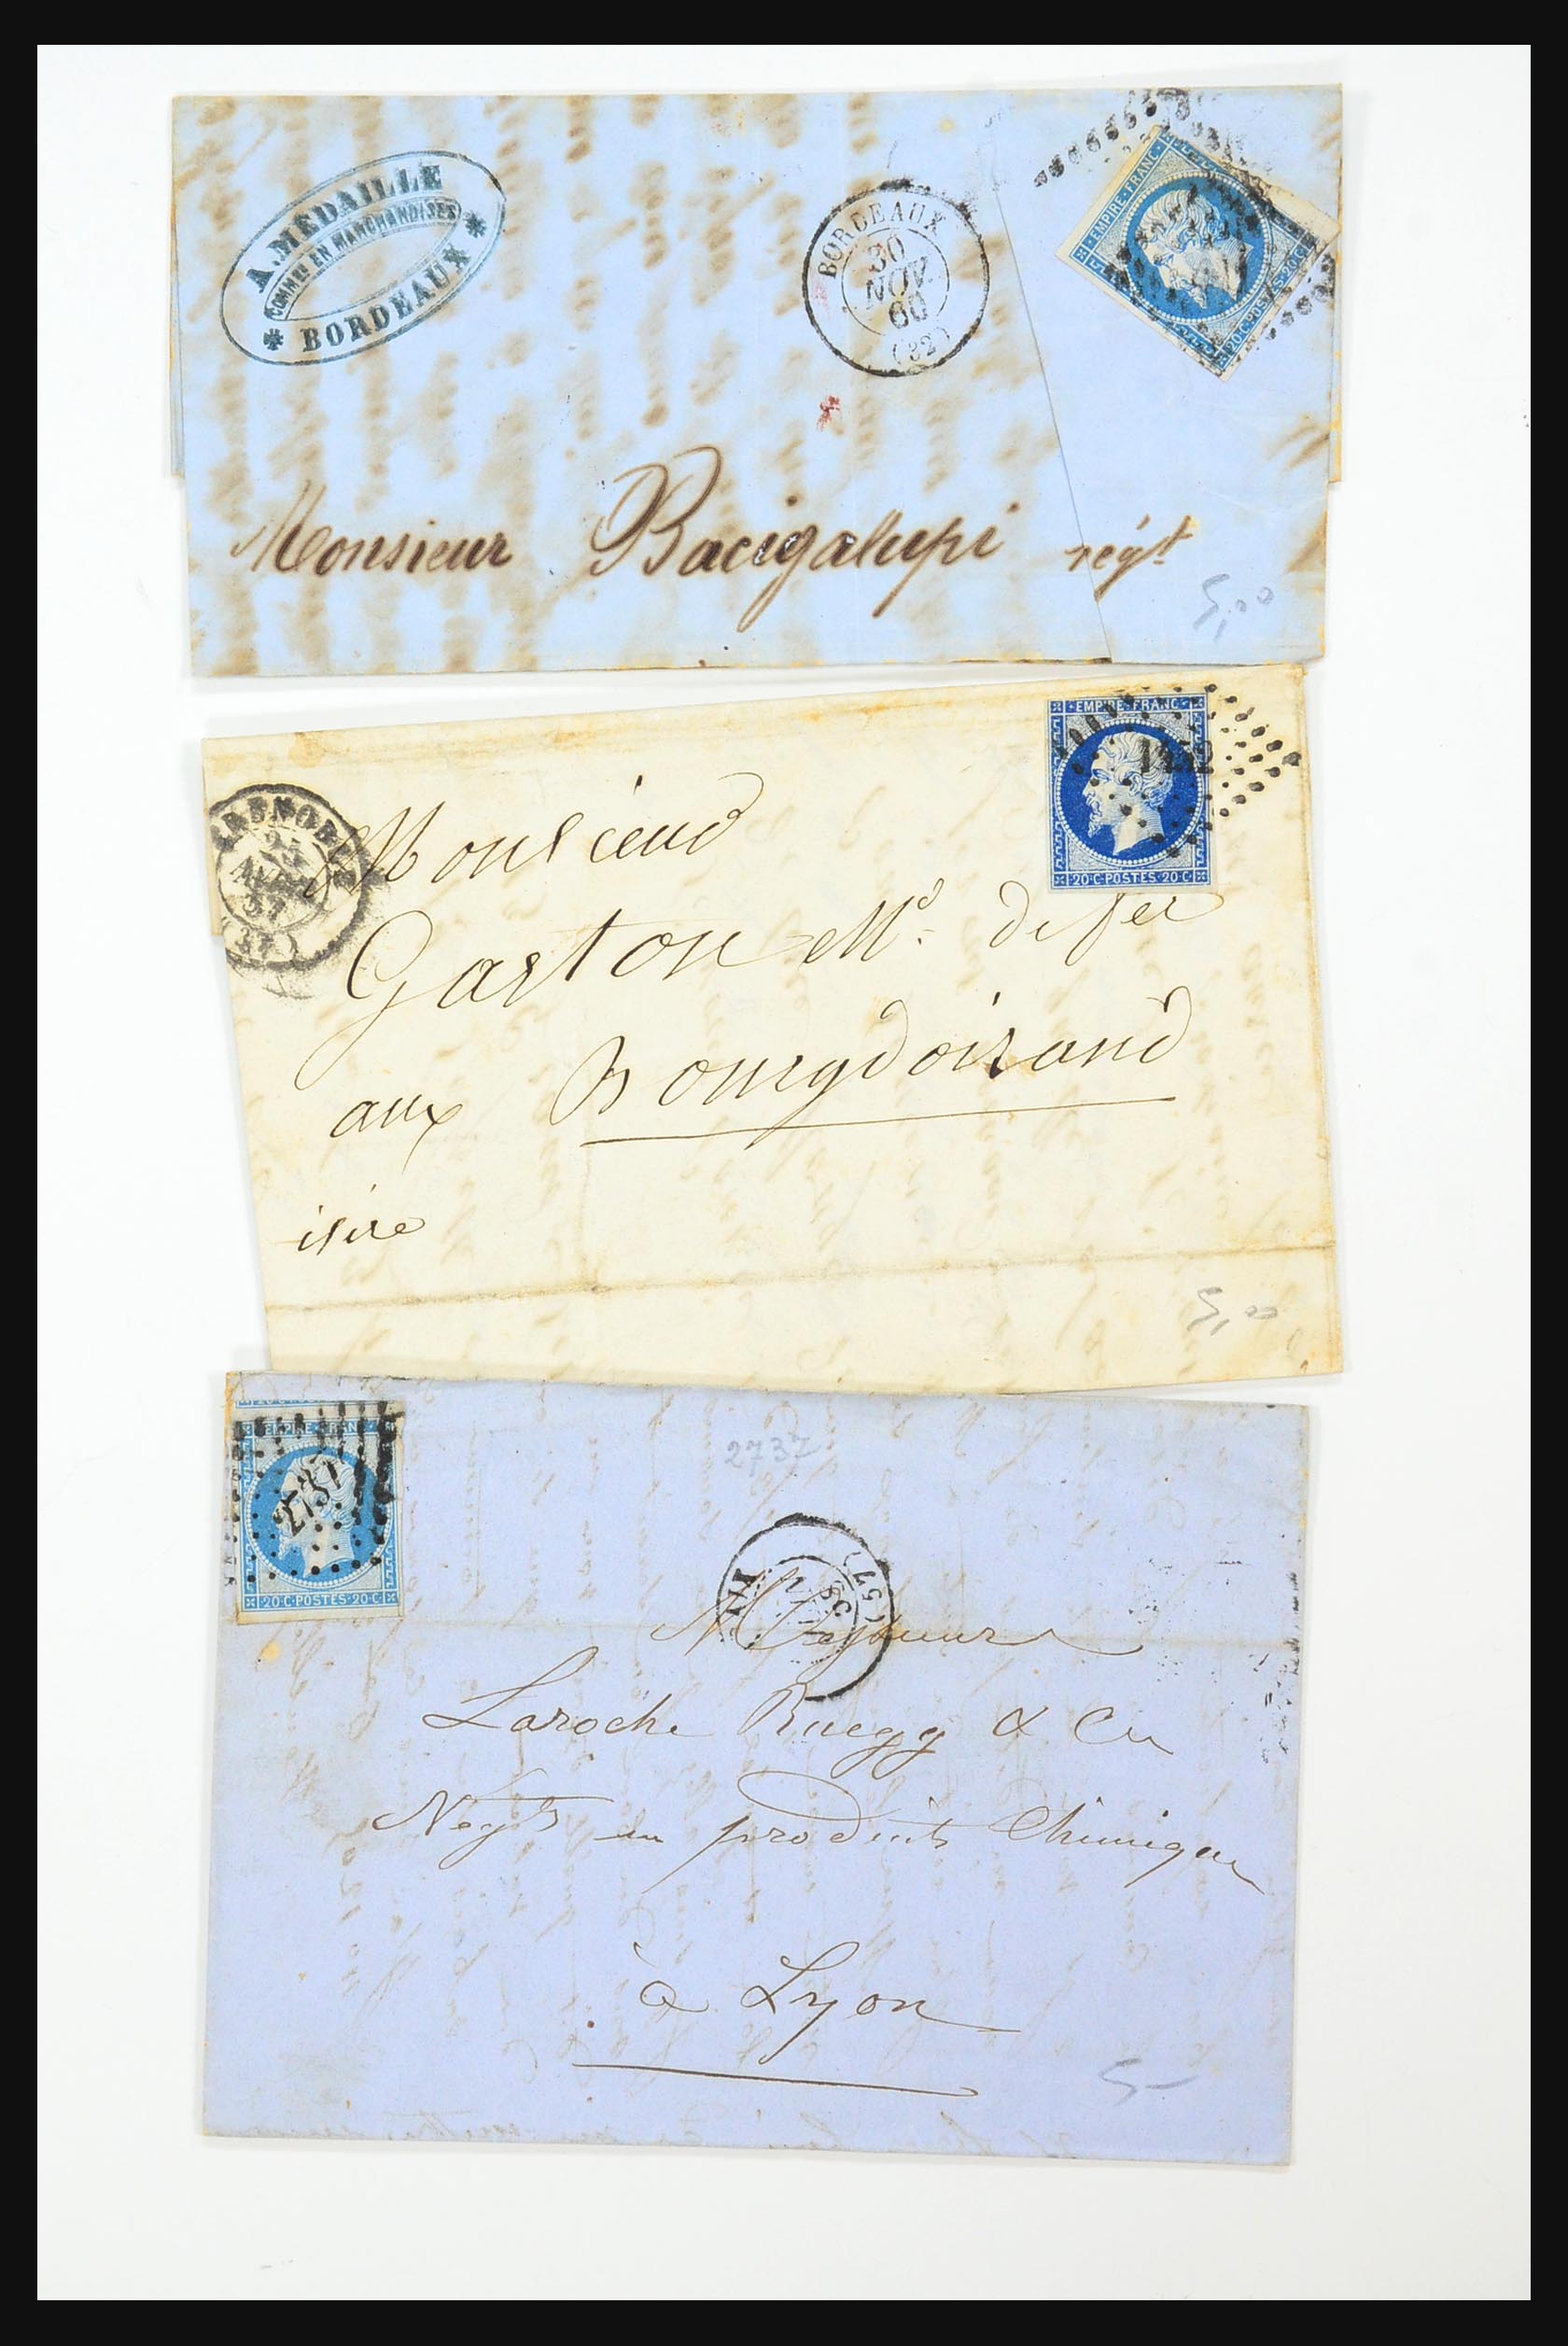 A. MÉDAILLE
COMMre EN MARCHANDISES
BORDEAUX
BORDEAUX
30
NOV.
60
(32)
EMPIRE·FRANC·
20·C·POSTES·20·C
Monsieur Bacigalupi négt
5,00
EMPIRE·FRANC·
20·C·POSTES·20·C
37
(37)
Monsieur
Gaston Md. de fer
aux Bourgdoisand
isire
5,00
EMPIRE·FRANC·
2737
20·C·POSTES·20·C
2737
58
(57)
Messieurs
Laroche Ruegg & Cie
Negts en produits Chimiques
à Lyon
5-